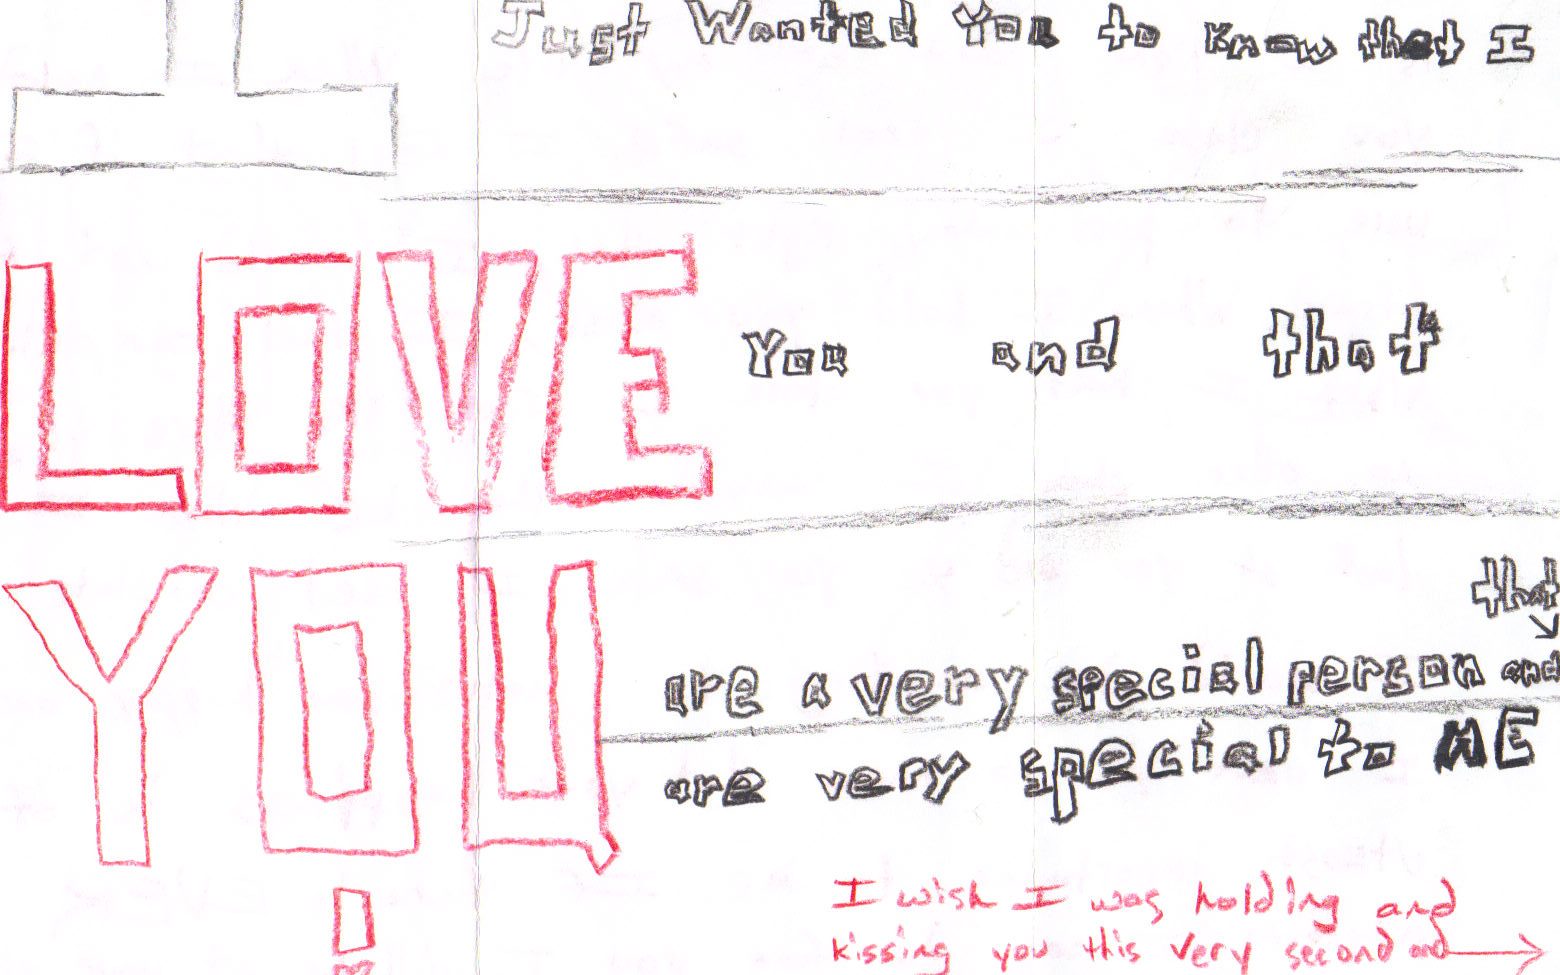 I Just Wanted You to know that I
LOVE You and that
that
YOU are a very special person and
are very special to ME
!
I wish I was holding and
kissing you this very second and